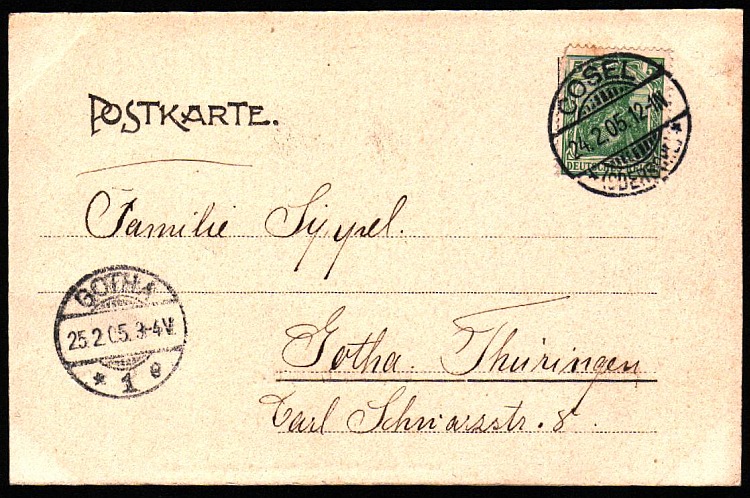 POSTKARTE.
COSEL
24.2.05.12-1N.
*(OBERSCHL.)*
DEUTSCHES
Familie Sippel.
GOTHA
25.2.05.3-4V.
* 1 e
Gotha. Thüringen
Carl Schwarzstr. 8.